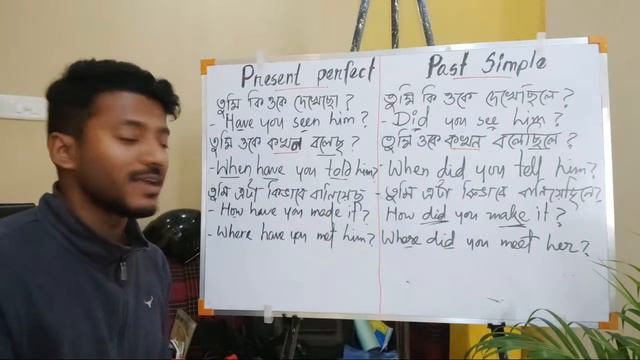 Present perfect
তুমি কি ওকে দেখেছো?
- Have you seen him?
তুমি ওকে কখন বলেছ?
- When have you told him?
তুমি এটা কিভাবে বানিয়েছ
- How have you made it?
- Where have you met him?
Past Simple
তুমি কি ওকে দেখেছিলে?
- Did you see him?
তুমি ওকে কখন বলেছিলে?
- When did you tell him?
- তুমি এটা কিভাবে বানিয়েছিলে?
How did you make it?
Where did you meet her?